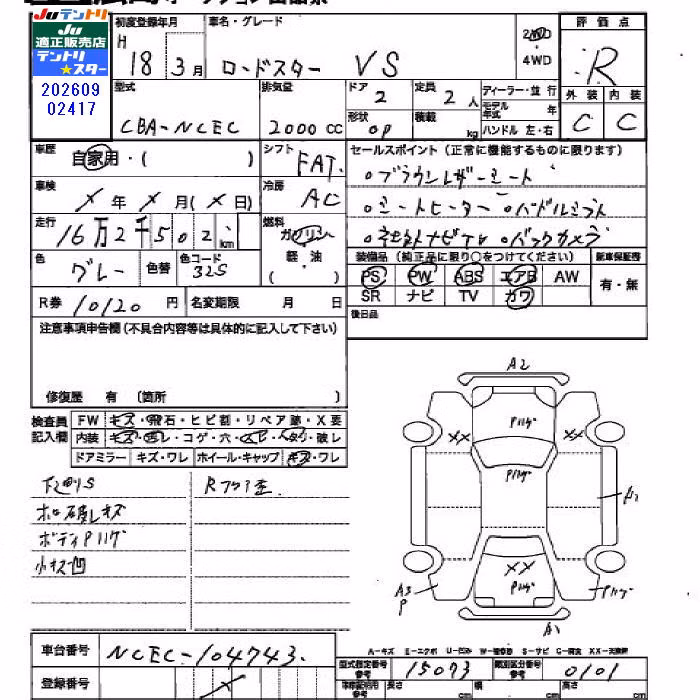 JUテントリ
JU
適正販売店
テントリ
★スター
202609
02417
初度登録年月
H 18 3月
車名・グレード
ロードスター VS
2WD
・
4WD
評価点
R
型式
CBA-NCEC
排気量
2000 cc
ドア 2
定員 2 人
形状 OP
積載 kg
ディーラー・並行
モデル年式 年
ハンドル 左・右
外装 内装
C C
車歴
自家用・( )
シフト
FAT
車検
X 年 X 月 ( X 日)
冷房
AC
走行
16万2千502 km
燃料
ガソリン
軽・油
( )
色
グレー
色替
色コード
32S
R券 10120 円
名変期限 月 日
セールスポイント(正常に機能するものに限ります)
○ブラウンレザーシート
○シートヒーター ○パドルシフト
○社外ナビTV ○バックカメラ
装備品(純正品に限り○をつけてください)
新車保証書
PS PW ABS エアB AW
SR ナビ TV カワ
有・無
後日品
注意事項申告欄(不具合内容等は具体的に記入して下さい)
修復歴 有 (箇所 )
検査員
記入欄
FW キズ・飛石・ヒビ割・リペア跡・X要
内装
ドアミラー キズ・ワレ ホイール・キャップ キズ・ワレ
下廻りS
ホロ破レキズ
ボディPハゲ
小キズ凹
Rフロア歪
A2
Pハゲ
XX XX
Pハゲ
XX
Pハゲ
A3
P
Pハゲ
A1
車台番号
NCEC-104743
登録番号
型式指定番号
参考
15073
類別区分番号
参考
0101
長さ cm
幅 cm
高さ cm